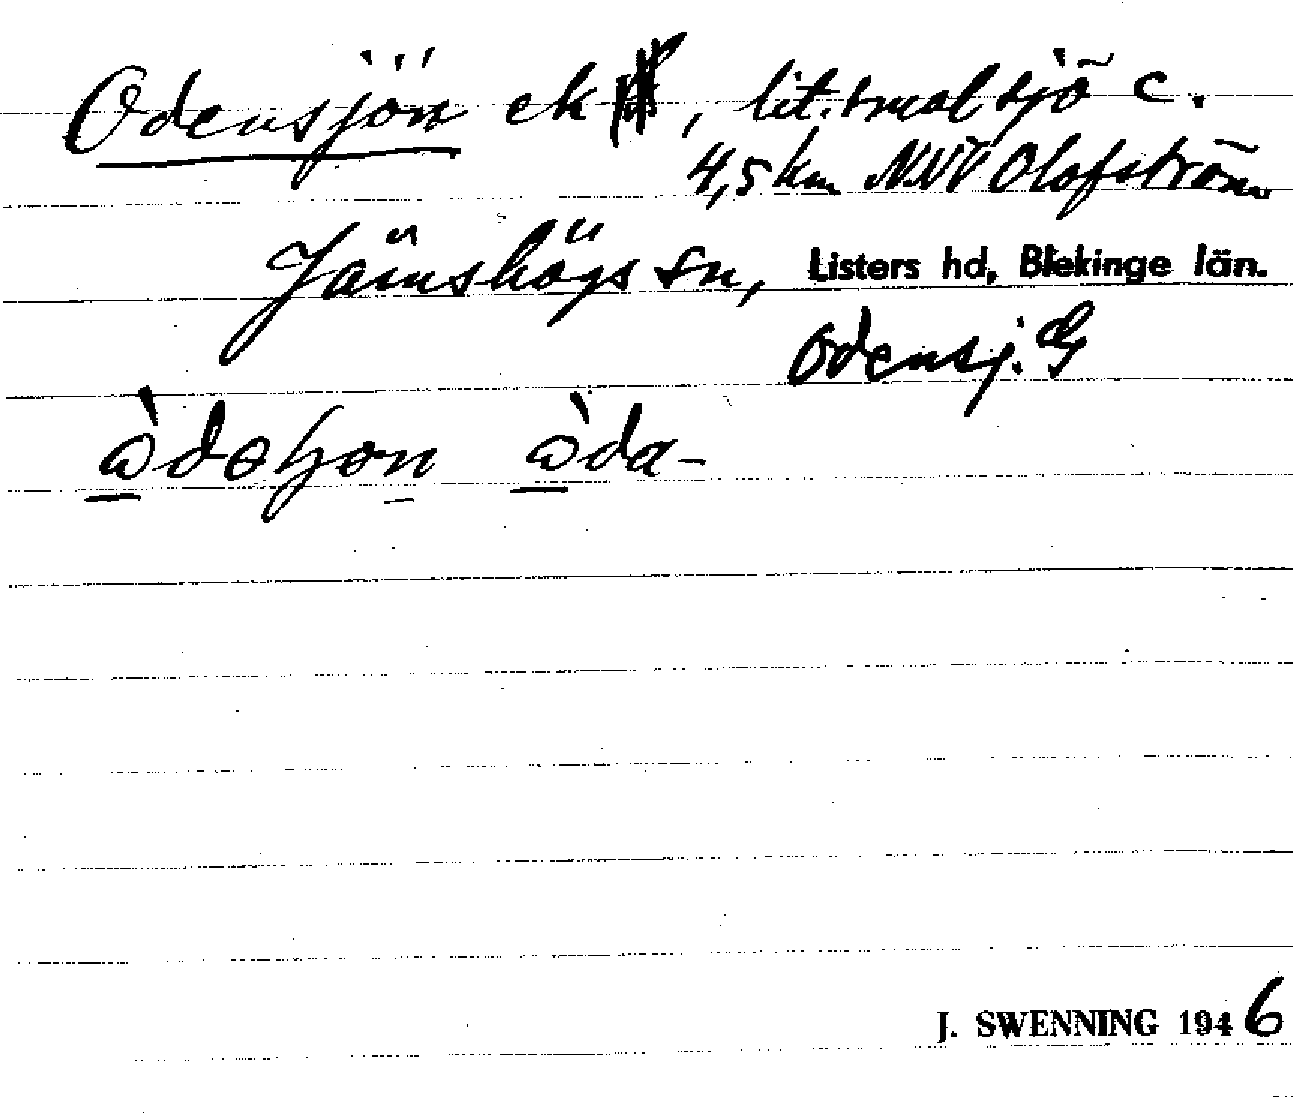 Odensjön ek, lit. smal sjö c.
4,5 km NNV Olofström
Jämshögs sn, Listers hd, Blekinge län.
Odensj. G
òdeʃon òda-
J. SWENNING 1946